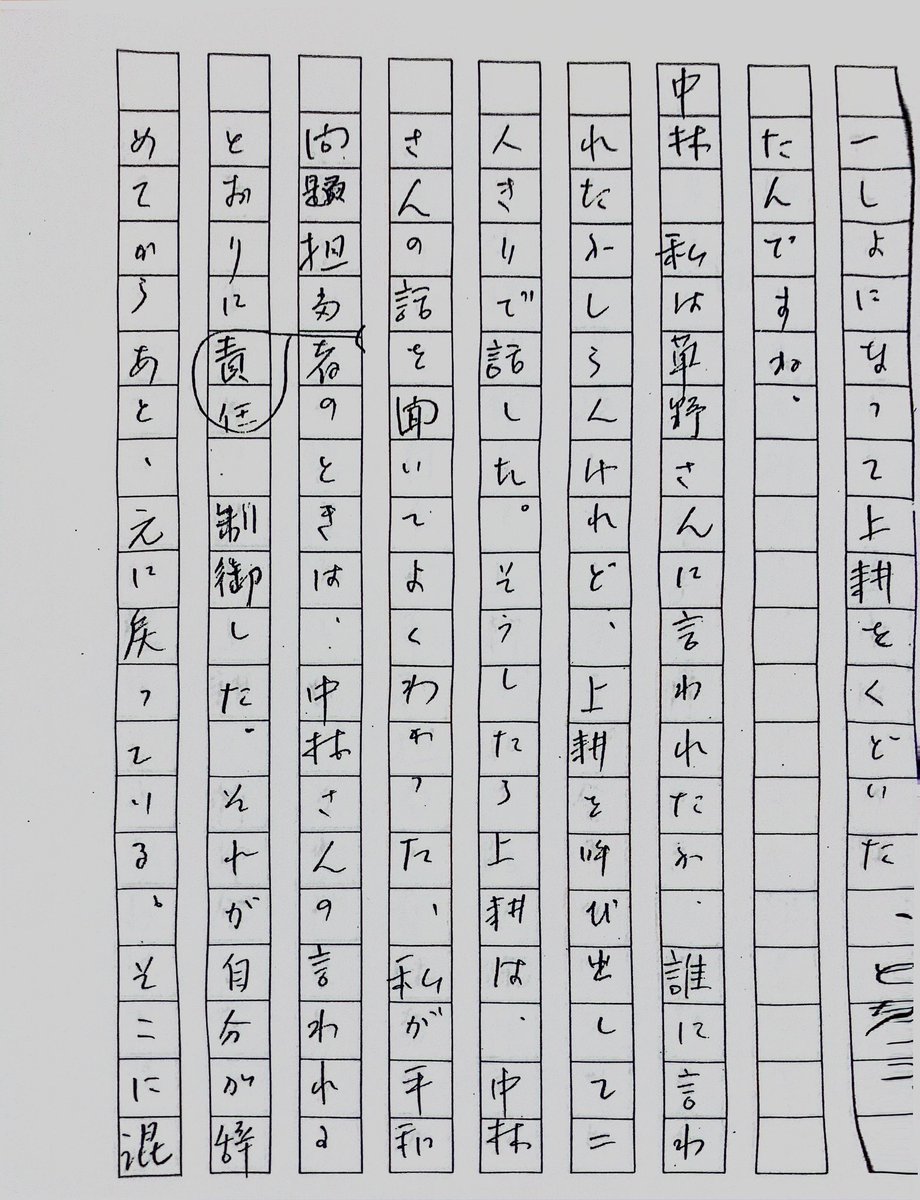 一しよになって上耕をくどいた、と
たんですね。
中林　私は草野さんに言われたか、誰に言わ
れたかしらんけれど、上耕を呼び出して二
人きりで話した。そうしたら上耕は、中林
さんの話を聞いてよくわかった、私が平和
問題担当者のときは、中林さんの言われる
とおりに責任、制御した。それが自分が辞
めてからあと、元に戻っている。そこに混